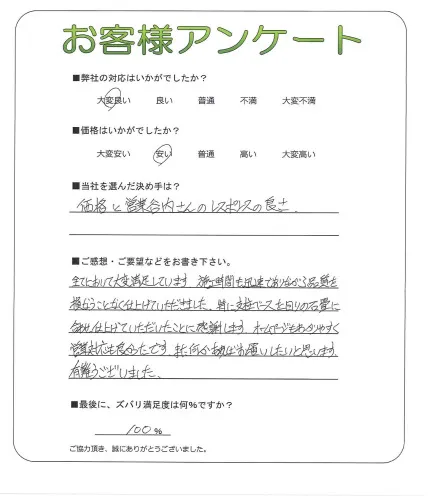 お客様アンケート
■弊社の対応はいかがでしたか？
大変良い 良い 普通 不満 大変不満
■価格はいかがでしたか？
大変安い 安い 普通 高い 大変高い
■当社を選んだ決め手は？
価格と営業合内さんのレスポンスの良さ。
■ご感想・ご要望などをお書き下さい。
全てにおいて大変満足しています 施工時間も迅速でありながら品質を
損なうことなく仕上げていただきました。特に支柱ベースを周りの石畳に
合わせ仕上げていただいたことに感謝します ホームページもわかりやすく
営業対応も良かったです。また何かあればお願いしたいと思います
有難うございました。
■最後に、ズバリ満足度は何%ですか？
100%
ご協力頂き、誠にありがとうございました。